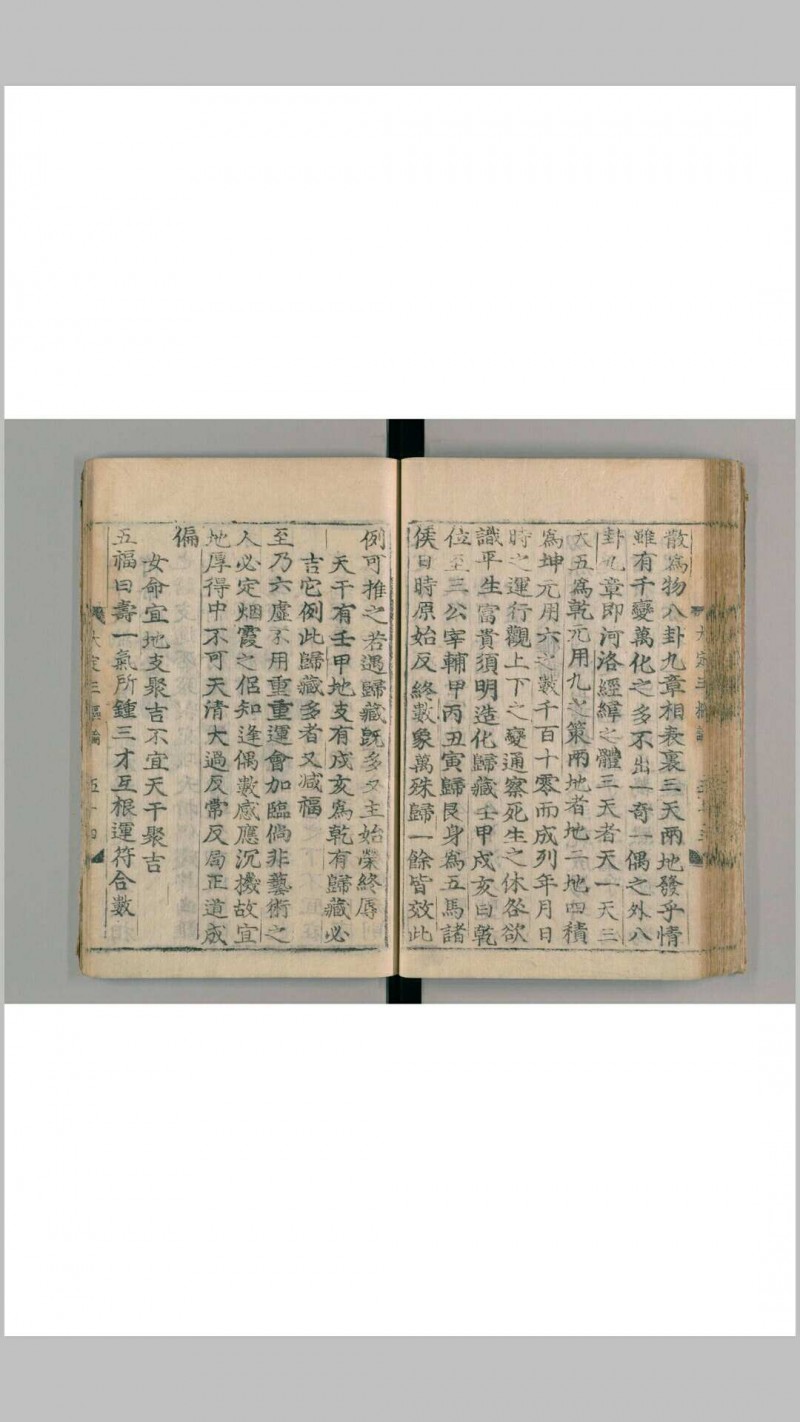 散為物八卦九章相表裏三天兩地發乎情
雖有千變萬化之多不出一奇一偶之外八
卦九章即河洛經緯之體三天者天一天三
天五為乾元用九之策兩地者地二地四積
為坤元用六之數千百十零而成列年月日
時之運行觀上下之變通察死生之休咎欲
識平生富貴須明造化歸藏壬甲戌亥曰乾
位至三公宰輔甲丙丑寅歸艮身為五馬諸
侯日時原始反終數象萬殊歸一餘皆效此
例可推之若遇歸藏旣多又主始榮終辱
天干有壬甲地支有戌亥為乾有歸藏必
吉它例此歸藏多者又减福
至乃六虛不用重重運會加臨倘非藝術之
人必定烟霞之侶知逢偶數感應沉機故宜
地厚得中不可天清大過反常反局正道成
偏
女命宜地支聚吉不宜天干聚吉
五福曰壽一氣所鍾三才互根運符合數